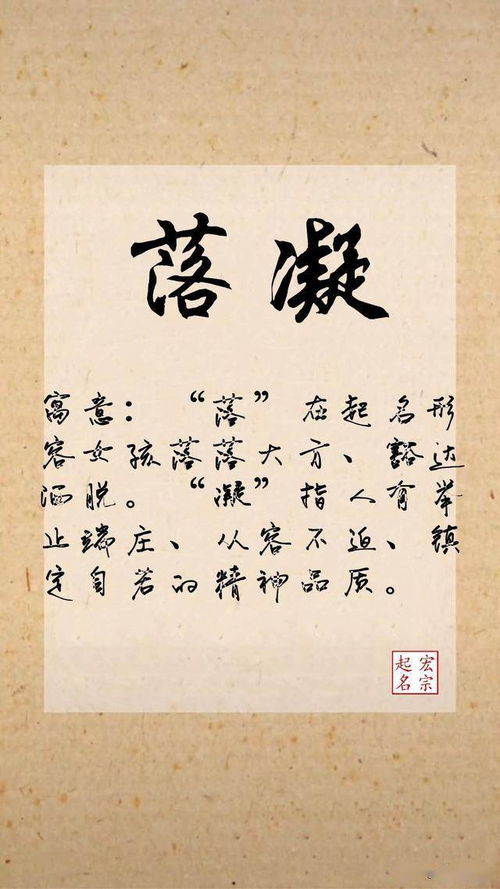 落凝
寓意：“落”在起名形
容女孩落落大方、豁达
洒脱。“凝”指人有举
止端庄、从容不迫、镇
定自若的精神品质。
宏宗
起名